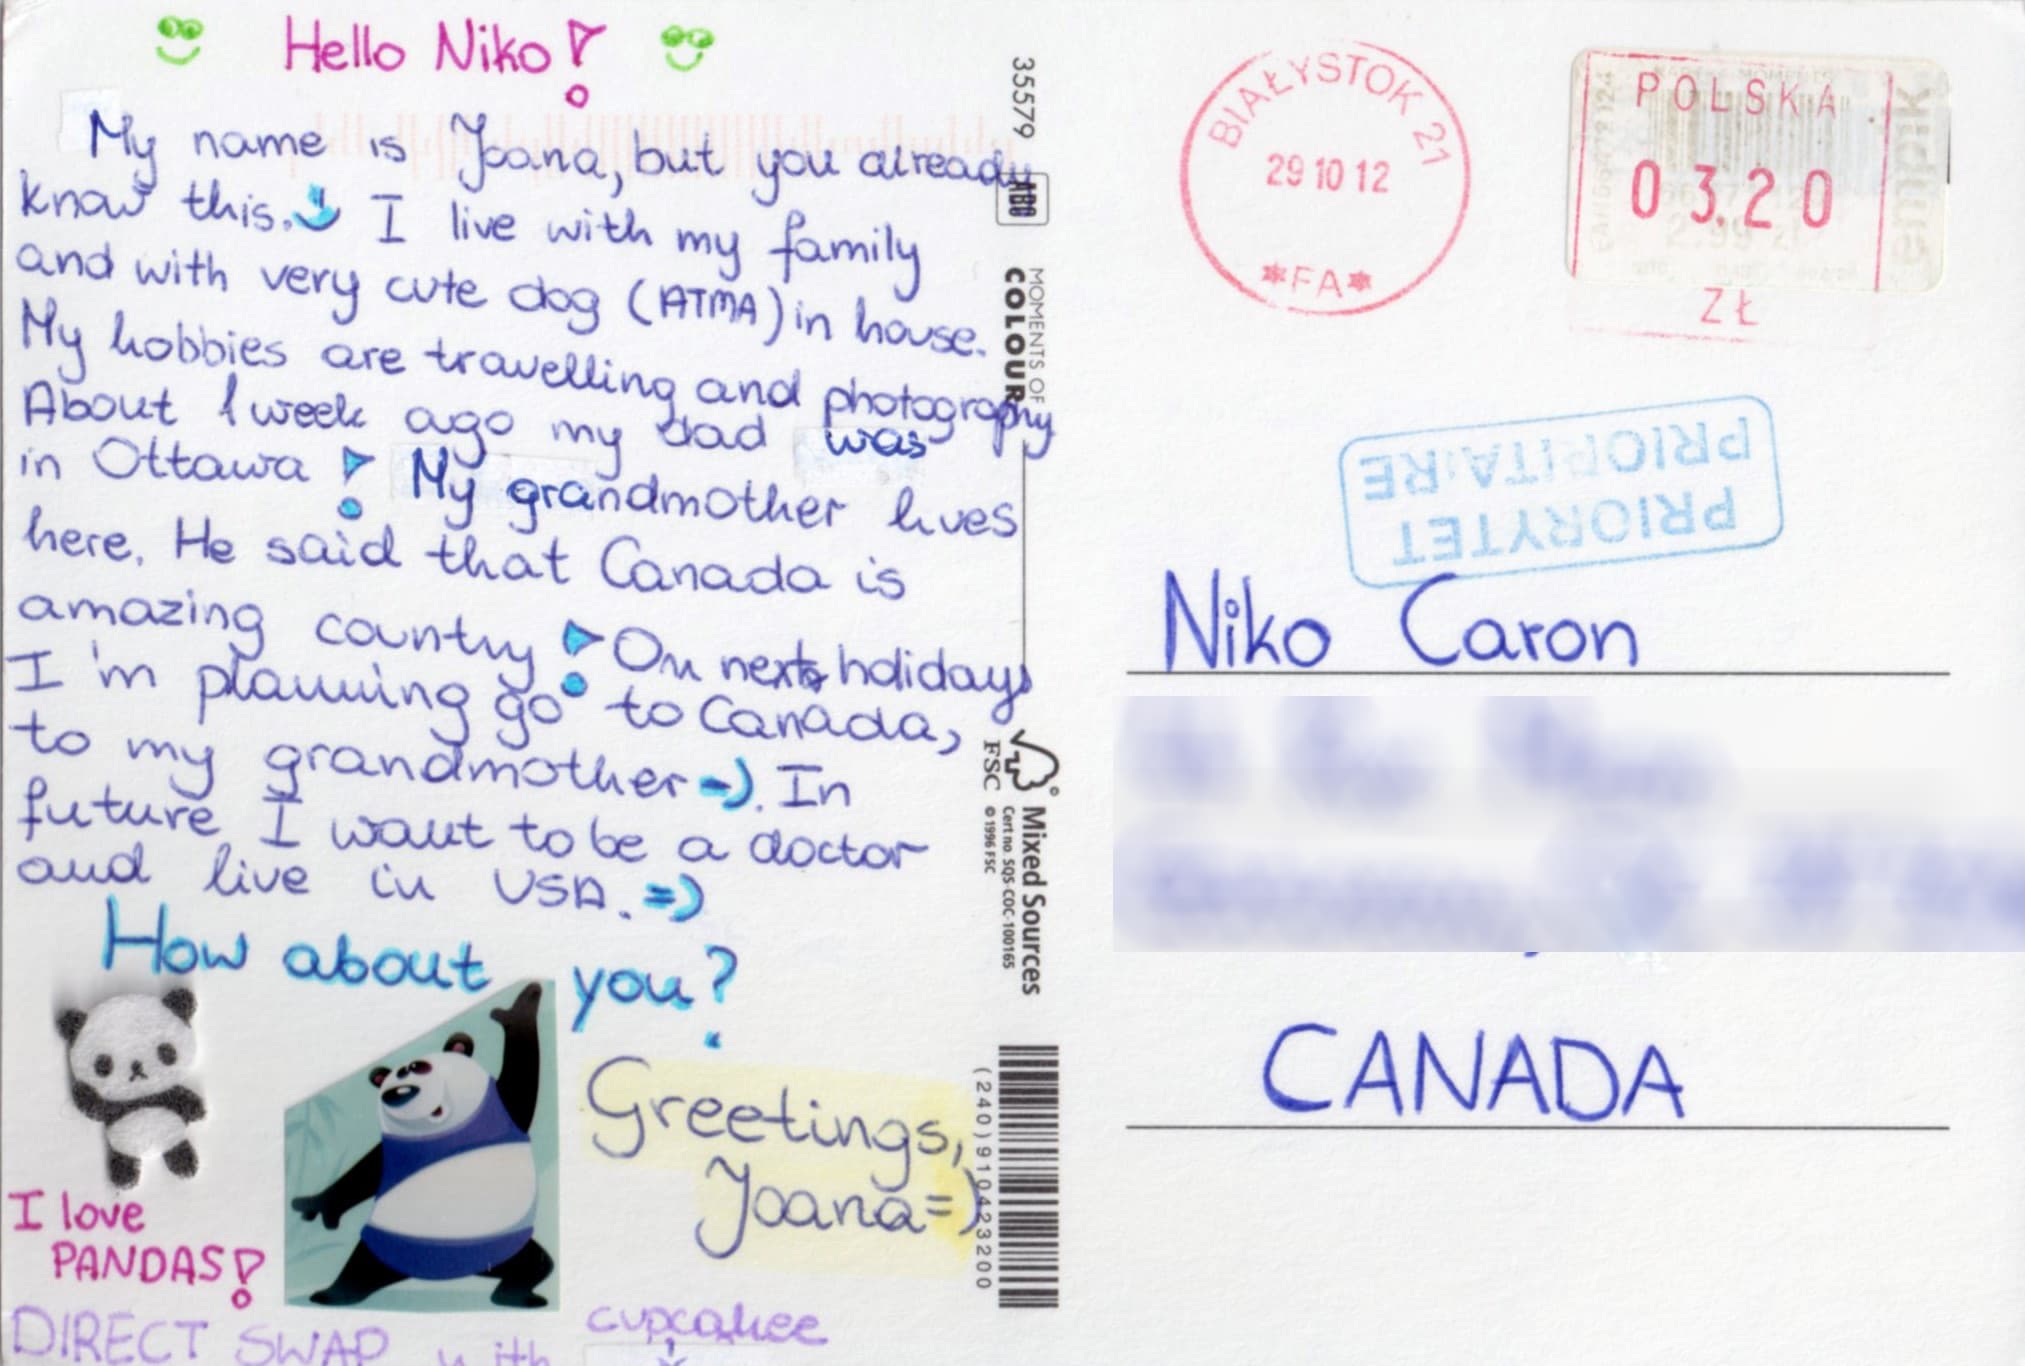 Hello Niko!
My name is Joana, but you already
know this. I live with my family
and with very cute dog (ATMA) in house.
My hobbies are travelling and photography
About 1 week ago my dad was
in Ottawa! My grandmother lives
here. He said that Canada is
amazing country! On next holidays
I'm planning go to Canada,
to my grandmother =). In
future I want to be a doctor
and live in USA. =)
How about you?
Greetings,
Joana =)
I love
PANDAS!
DIRECT SWAP with cupcakee
35579
ABO
MOMENTS OF
COLOUR
FSC
Mixed Sources
Cert no. SQS-COC-100165
© 1996 FSC
(240)9104223200
BIAŁYSTOK 21
29 10 12
*FA*
POLSKA
03.20
ZŁ
empik
2.99 zł
PRIORYTET
PRIORITAIRE
Niko Caron
CANADA